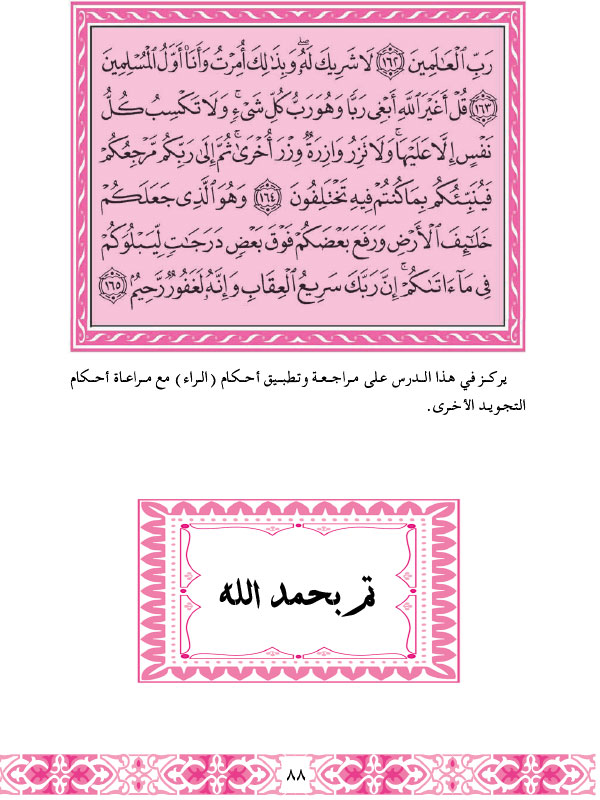 رَبِّ ٱلْعَٰلَمِينَ ﴿١٦٢﴾ لَا شَرِيكَ لَهُۥۖ وَبِذَٰلِكَ أُمِرْتُ وَأَنَا۠ أَوَّلُ ٱلْمُسْلِمِينَ
﴿١٦٣﴾ قُلْ أَغَيْرَ ٱللَّهِ أَبْغِى رَبًّا وَهُوَ رَبُّ كُلِّ شَىْءٍۚ وَلَا تَكْسِبُ كُلُّ
نَفْسٍ إِلَّا عَلَيْهَاۚ وَلَا تَزِرُ وَازِرَةٌ وِزْرَ أُخْرَىٰۚ ثُمَّ إِلَىٰ رَبِّكُم مَّرْجِعُكُمْ
فَيُنَبِّئُكُم بِمَا كُنتُمْ فِيهِ تَخْتَلِفُونَ ﴿١٦٤﴾ وَهُوَ ٱلَّذِى جَعَلَكُمْ
خَلَٰٓئِفَ ٱلْأَرْضِ وَرَفَعَ بَعْضَكُمْ فَوْقَ بَعْضٍ دَرَجَٰتٍ لِّيَبْلُوَكُمْ
فِى مَآ ءَاتَىٰكُمْۗ إِنَّ رَبَّكَ سَرِيعُ ٱلْعِقَابِ وَإِنَّهُۥ لَغَفُورٌ رَّحِيمٌۢ ﴿١٦٥﴾
يركز في هذا الدرس على مراجعة وتطبيق أحكام (الراء) مع مراعاة أحكام
التجويد الأخرى.
تم بحمد الله
٨٨